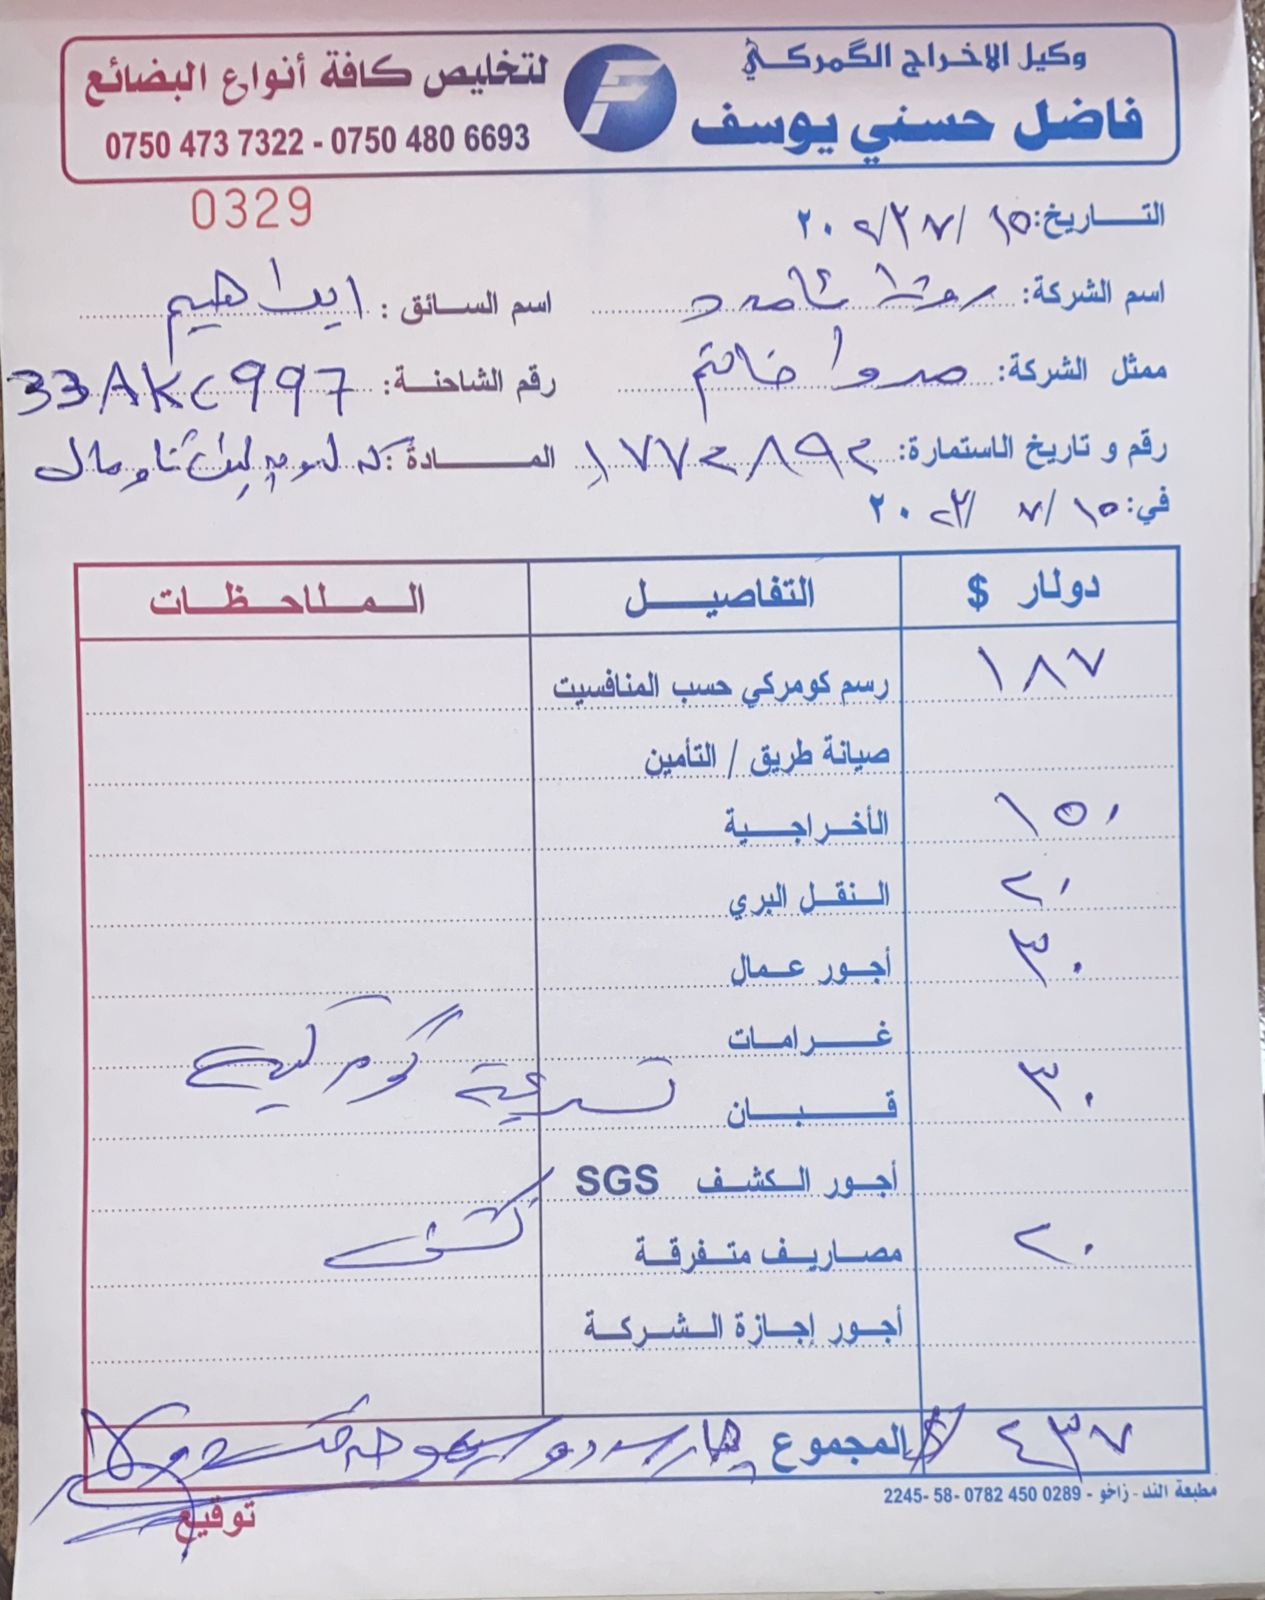 وكيل الاخراج الگمركي
فاضل حسني يوسف
لتخليص كافة أنواع البضائع
0750 473 7322 - 0750 480 6693
0329
التاريخ: ١٥ / ٧ /٢٠٢٣
اسم الشركة:
اسم السائق : ابراهيم
ممثل الشركة:
رقم الشاحنة: 33AKC997
رقم و تاريخ الاستمارة: ١٧٧٢٨٩٢
المادة:
في: ١٥ / ٧ /٢٠٢٣
دولار $ التفاصيل الملاحظات
١٨٧ رسم كومركي حسب المنافسيت
صيانة طريق / التأمين
١٥٠ الأخراجية
٢٠ النقل البري
٣٠ أجور عمال
غرامات
٣٠ قبان تسرعة گومرکی
أجور الكشف SGS
٢٠ مصاريف متفرقة كشف
أجور إجازة الشركة
٤٣٧ $ المجموع چارسەدو سیهوحەفت دولار
توقيع
مطبعة الند - زاخو - 0289 450 0782 -58 -2245